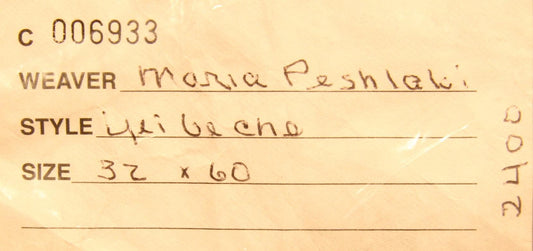 C 006933
WEAVER Maria Peshlaki
STYLE yei be che
SIZE 32 x 60
2400